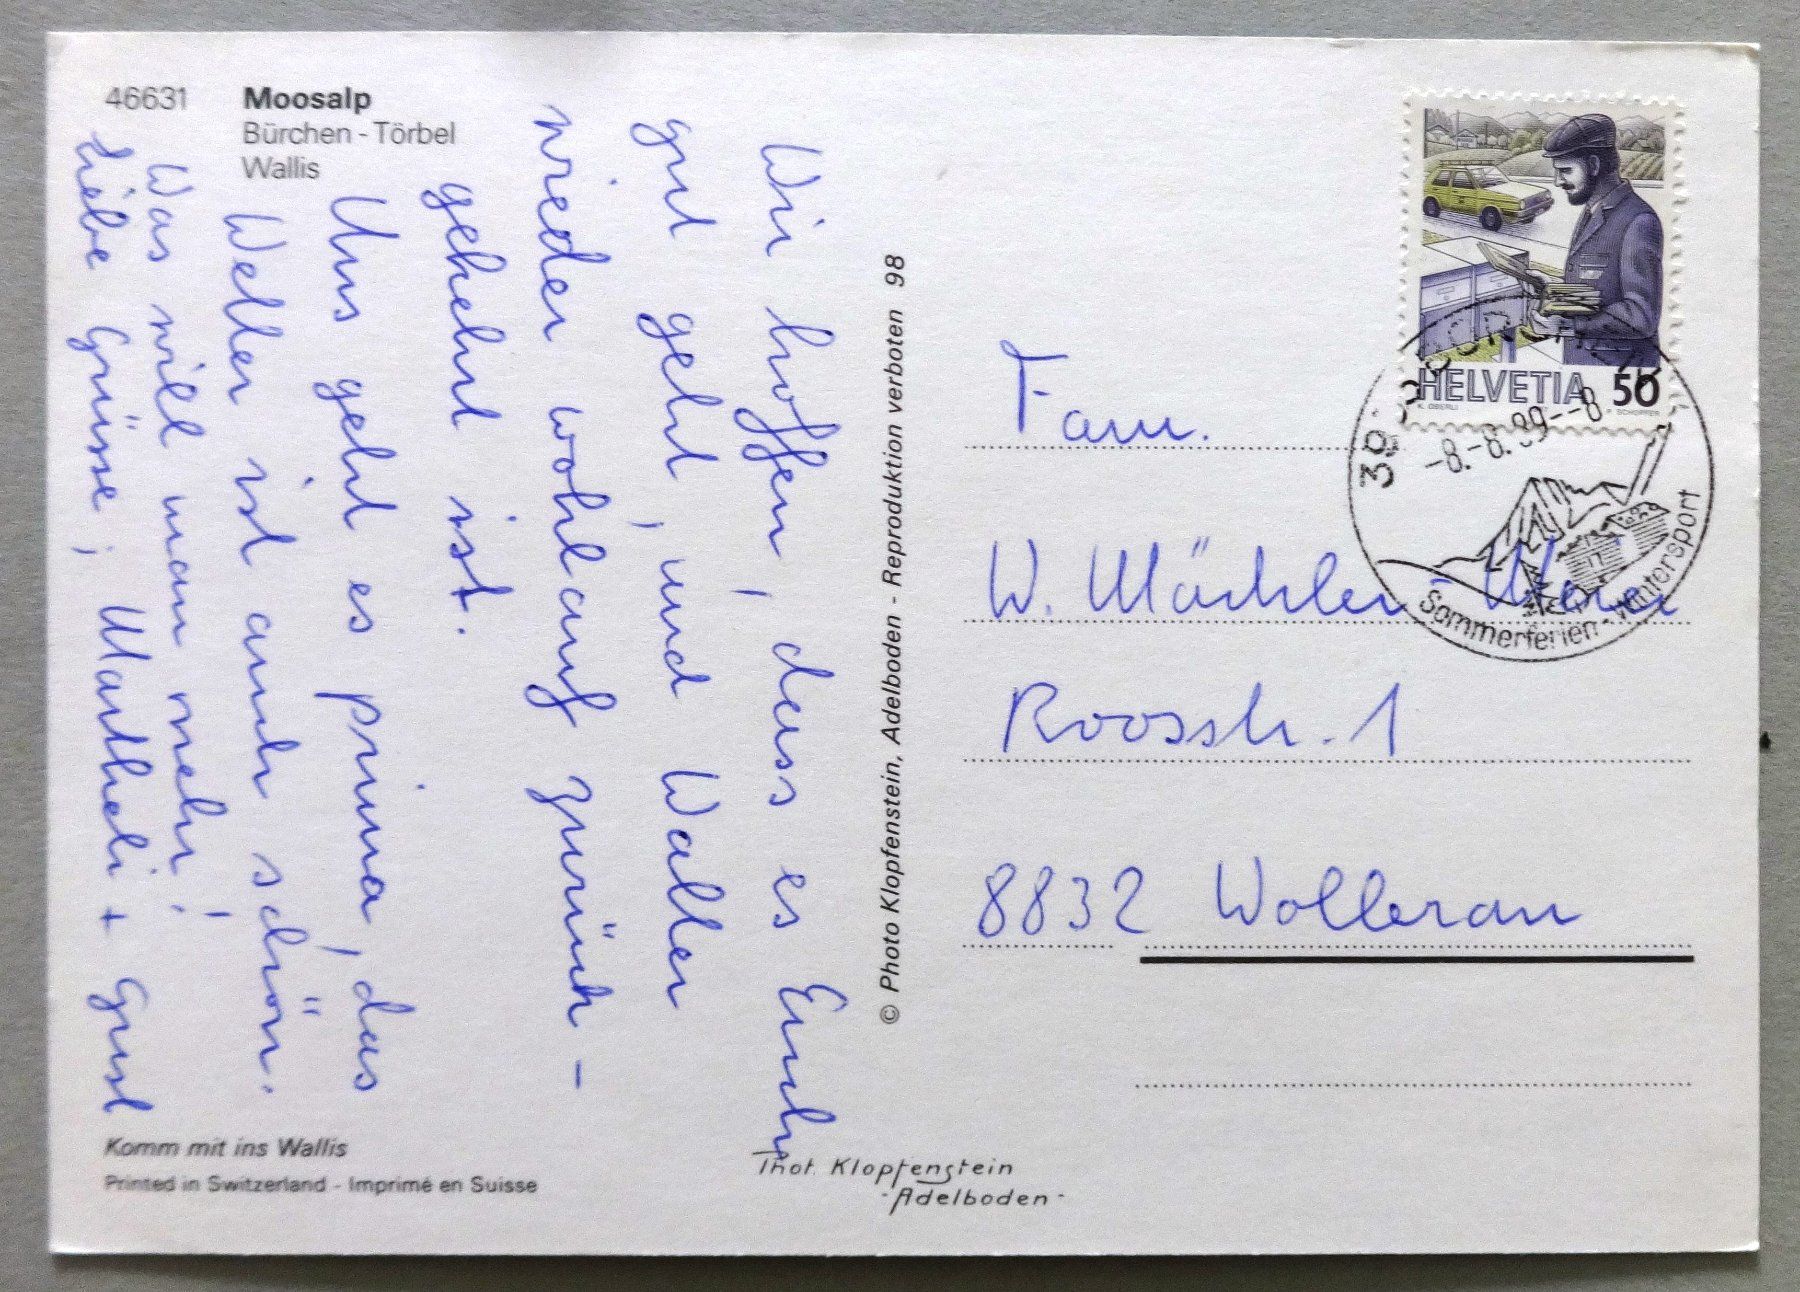 46631 Moosalp
Bürchen - Törbel
Wallis
Wir hoffen, dass es Euch
gut geht, und Walter
wieder wohlauf zurück -
gekehrt ist.
Uns geht es prima, das
Wetter ist auch schön.
Was will man mehr!
Liebe Grüsse, Martheli + Gust
Komm mit ins Wallis
Printed in Switzerland - Imprimé en Suisse
© Photo Klopfenstein, Adelboden - Reproduktion verboten 98
Phot. Klopfenstein
- Adelboden -
HELVETIA 50
K. OBERLI
-8.-8.89--8
Sommerferien - Wintersport
Fam.
W. Mächler -
Roosstr. 1
8832 Wollerau